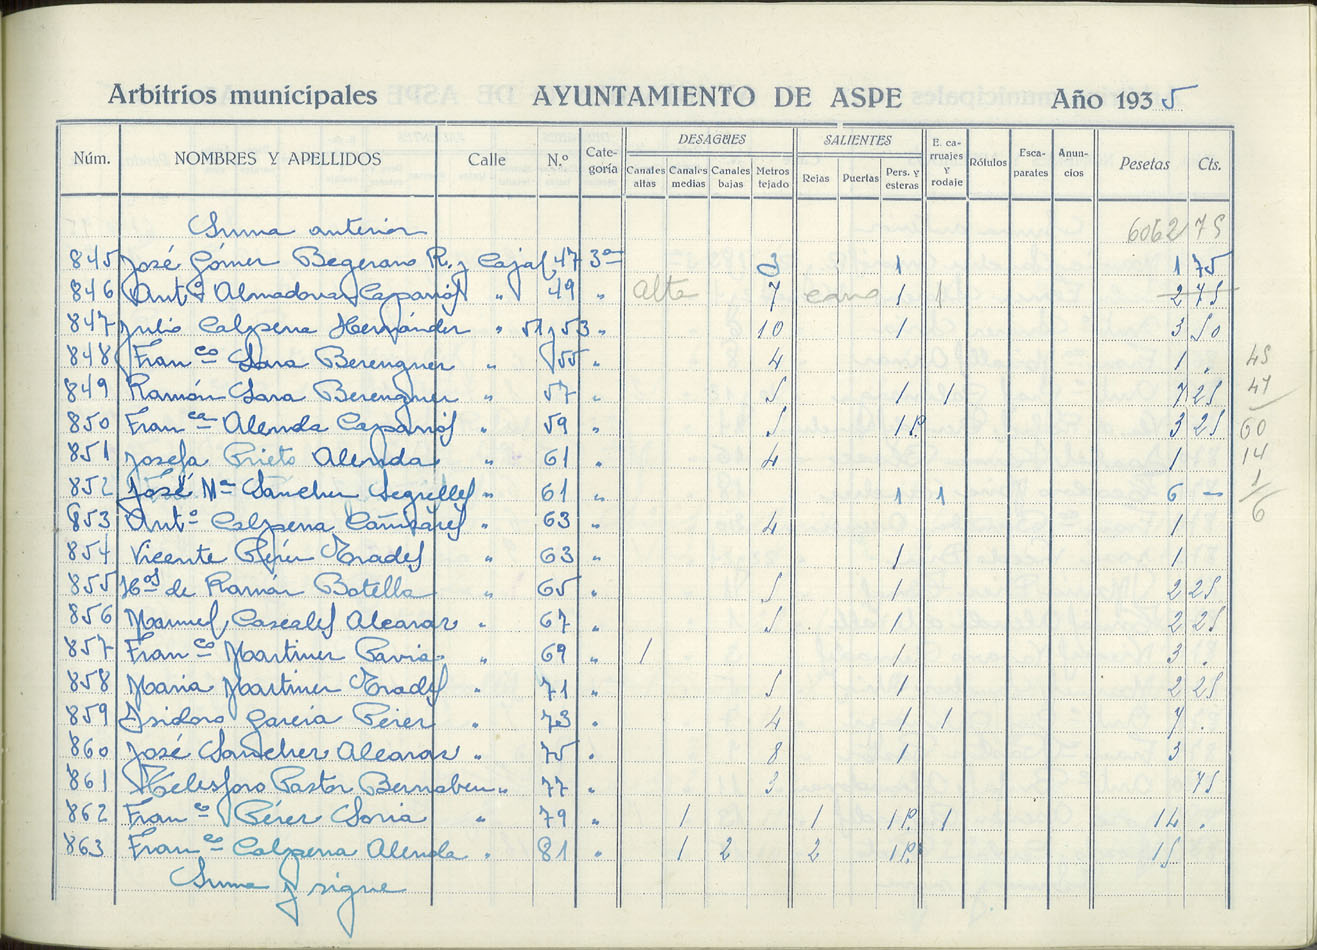 Arbitrios municipales AYUNTAMIENTO DE ASPE Año 1935
Núm. NOMBRES Y APELLIDOS Calle N.º Cate-goría DESAGÜES Canales altas Canales medias Canales bajas Metros tejado SALIENTES Rejas Puertas Pers. y esteras E. ca-rruajes y rodaje Rótulos Esca-parates Anun-cios Pesetas Cts.
Suma anterior 6062 75
845 José Gómez Begerano R. y Cajal 47 3ª 3 1 1 75
846 Antº Almodovar Caparrós " 49 " alta 7 1 1 2 75
847 Julio Calpena Hernández " 51 y 53 " 10 1 3 50
848 Franco Sara Berenguer " 55 " 4 1 . 45
849 Ramón Sara Berenguer " 57 " 5 1 1 7 25 47
850 Franca Alenda Caparrós " 59 " 5 1 P. 3 25 60
851 Josefa Prieto Alenda " 61 " 4 1 14
852 José Mª Sanchez Segrelles " 61 " 1 1 6 - 1/6
853 Antº Calpena Cañizares " 63 " 4 1
854 Vicente Pérez Prades " 63 " 1 1
855 Hos de Ramón Botella " 65 " 5 1 2 25
856 Manuel Cascales Alcaraz " 67 " 5 1 2 25
857 Franco Martinez Pavia " 69 " 1 1 3 .
858 Maria Martinez Prades " 71 " 5 1 2 25
859 Isidoro Garcia Pérez " 73 " 4 1 1 7 .
860 José Sanchez Alcaraz " 75 " 8 1 3
861 Telesforo Pastor Bernabeu " 77 " 3 75
862 Franco Pérez Soria " 79 " 1 1 1 P. 1 14 .
863 Franco Calpena Alenda " 81 " 1 2 2 1 P. 15
Suma y sigue